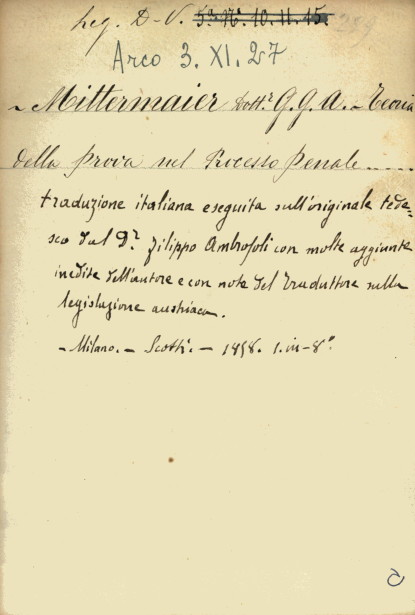 Leg. D-V. 5a. No. 10. 11. 15.
Arco 3. XI. 27
- Mittermaier Dottr. G. G. A. - Teoria
della prova nel Processo penale....
traduzione italiana eseguita sull'originale tede=
sco dal Dr. Filippo Ambrosoli con molte aggiunte
inedite dell'autore e con note del traduttore sulla
legislazione austriaca.
- Milano. - Scotti. - 1858. 1. in-8°.